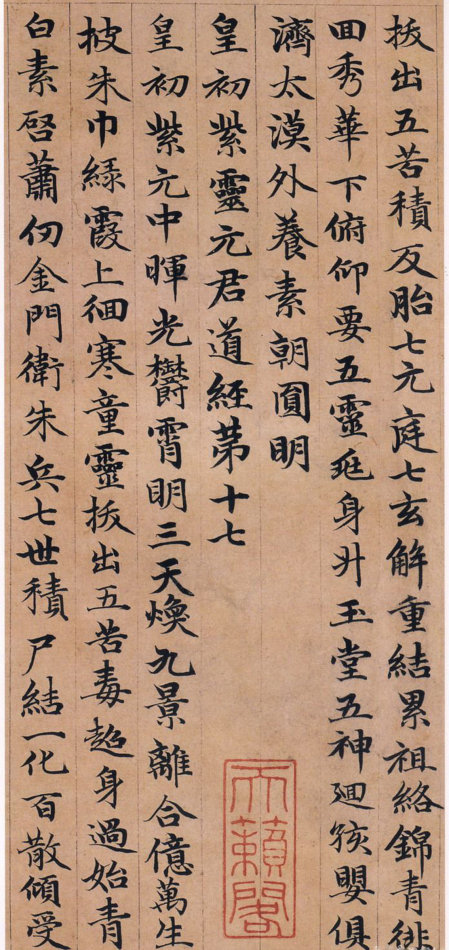 拔出五苦積反胎七元庭七玄解重結累祖絡錦青
回秀華下俯仰要五靈軀身升玉堂五神廻孩嬰俱
濟太漠外養素朝圓明
皇初紫靈元君道經苐十七
皇初紫元中暉光欝霄明三天煥九景離合億萬生
披朱巾緑霞上徊寒童靈拔出五苦毒超身過始青
白素啓蕭仞金門衛朱兵七世積尸結一化百散傾受
天籟閣